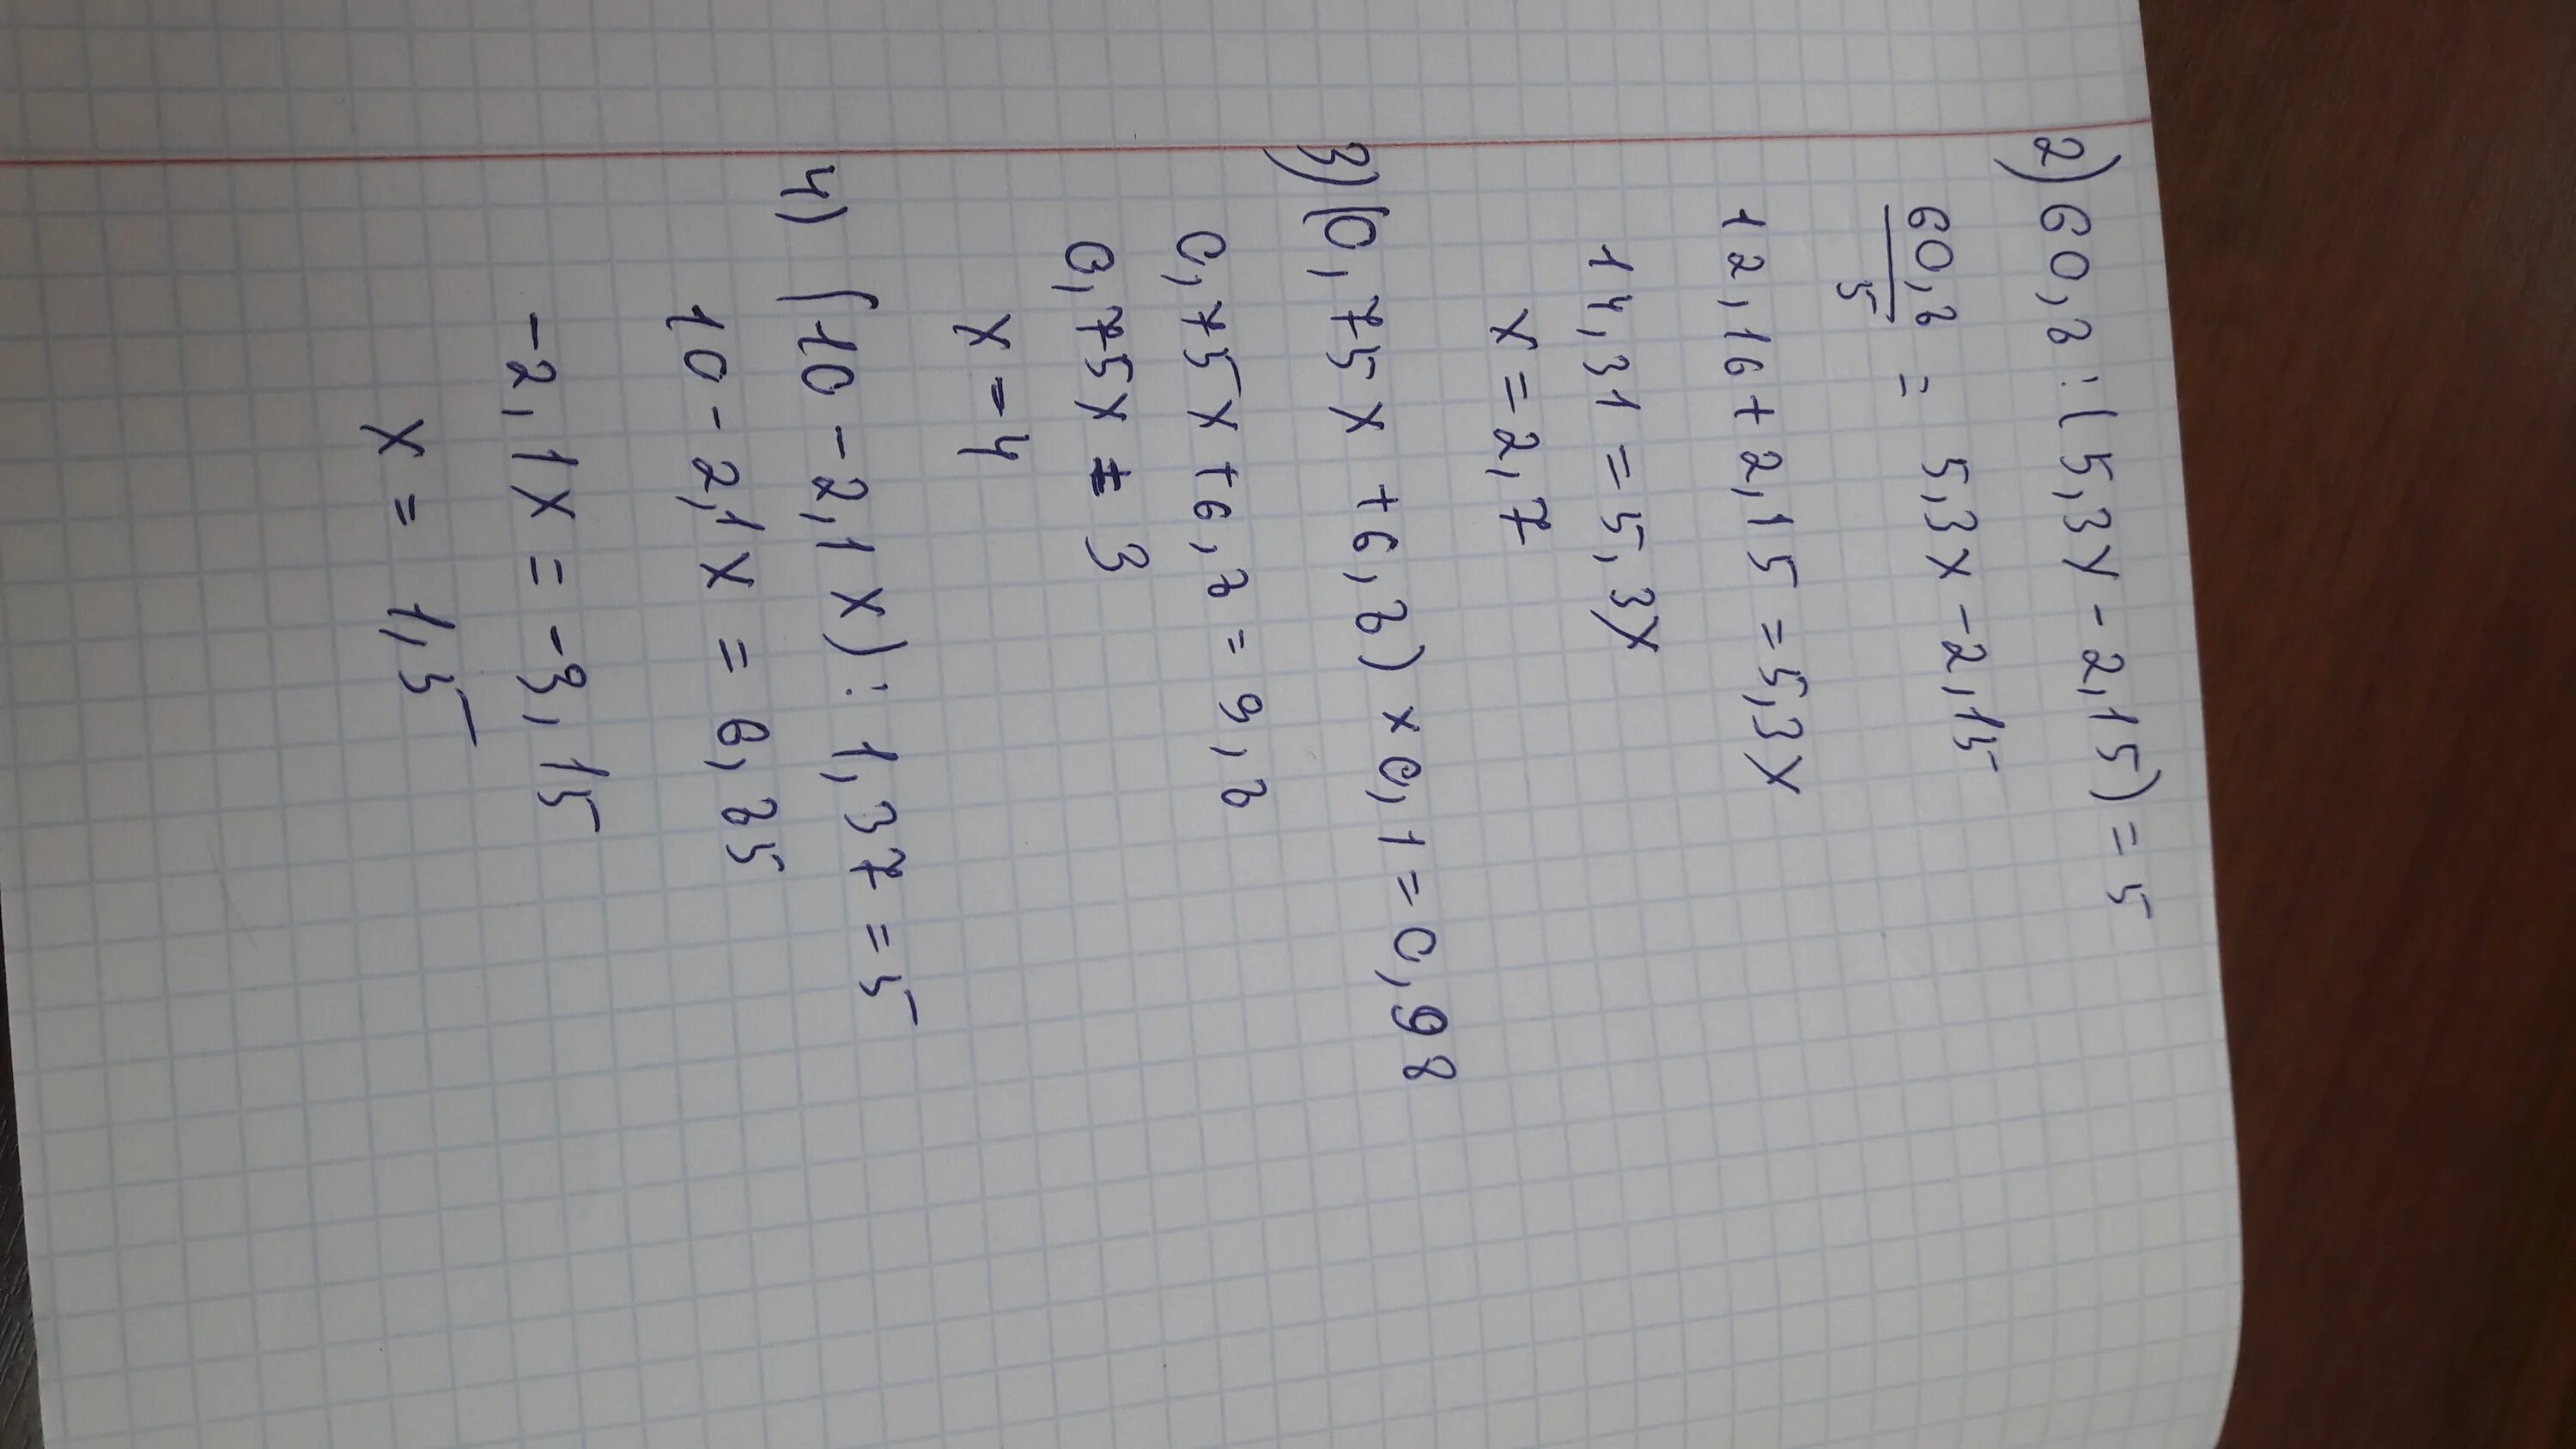 2) 60,8:(5,3x-2,15)=5
60,8/5 = 5,3x-2,15
12,16+2,15=5,3x
14,31=5,3x
x=2,7
3) (0,75x+6,8)×0,1=0,98
0,75x+6,8=9,8
0,75x=3
x=4
4) (10-2,1x):1,37=5
10-2,1x=6,85
-2,1x=-3,15
x=1,5